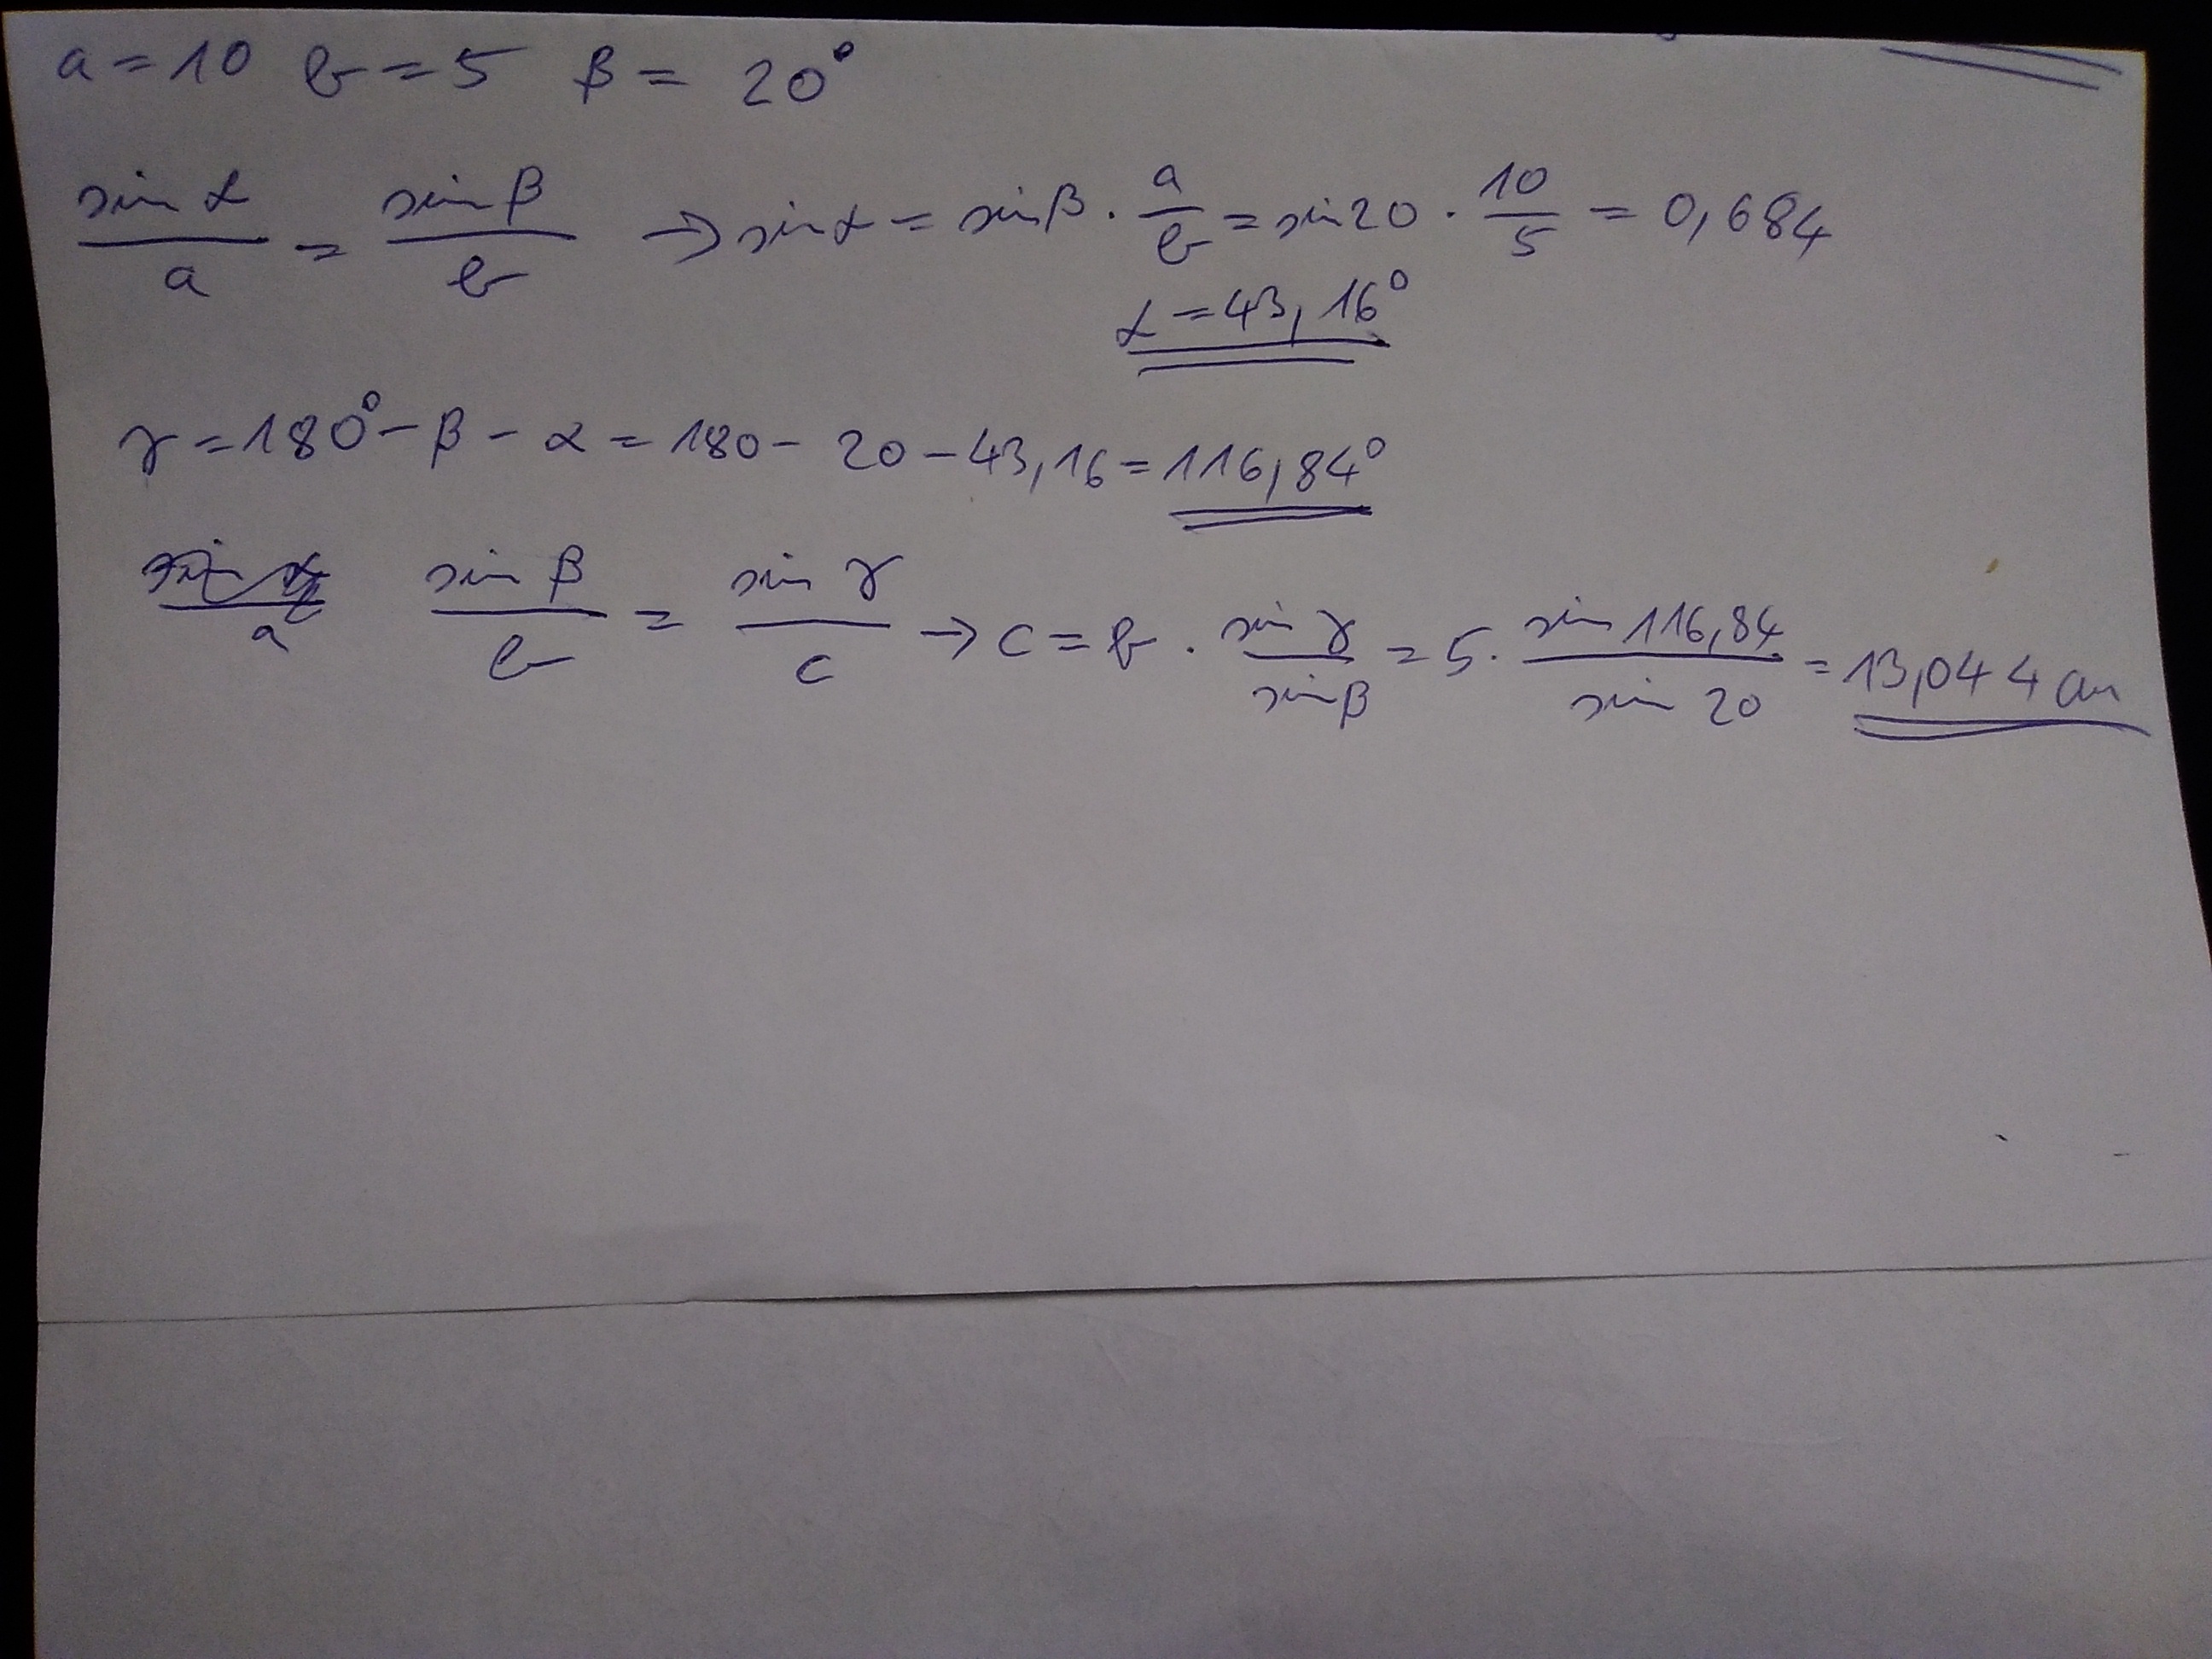 a = 10 b = 5 β = 20°
sin α / a = sin β / b → sin α = sin β · a / b = sin 20 · 10 / 5 = 0,684
α = 43,16°
γ = 180° - β - α = 180 - 20 - 43,16 = 116,84°
sin β / b = sin γ / c → c = b · sin γ / sin β = 5 · sin 116,84 / sin 20 = 13,044 cm